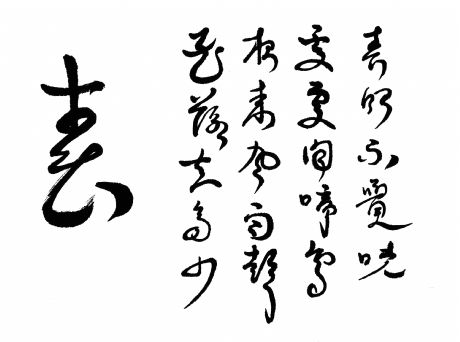 春眠不覺曉
處處聞啼鳥
夜來風雨聲
花落知多少
春